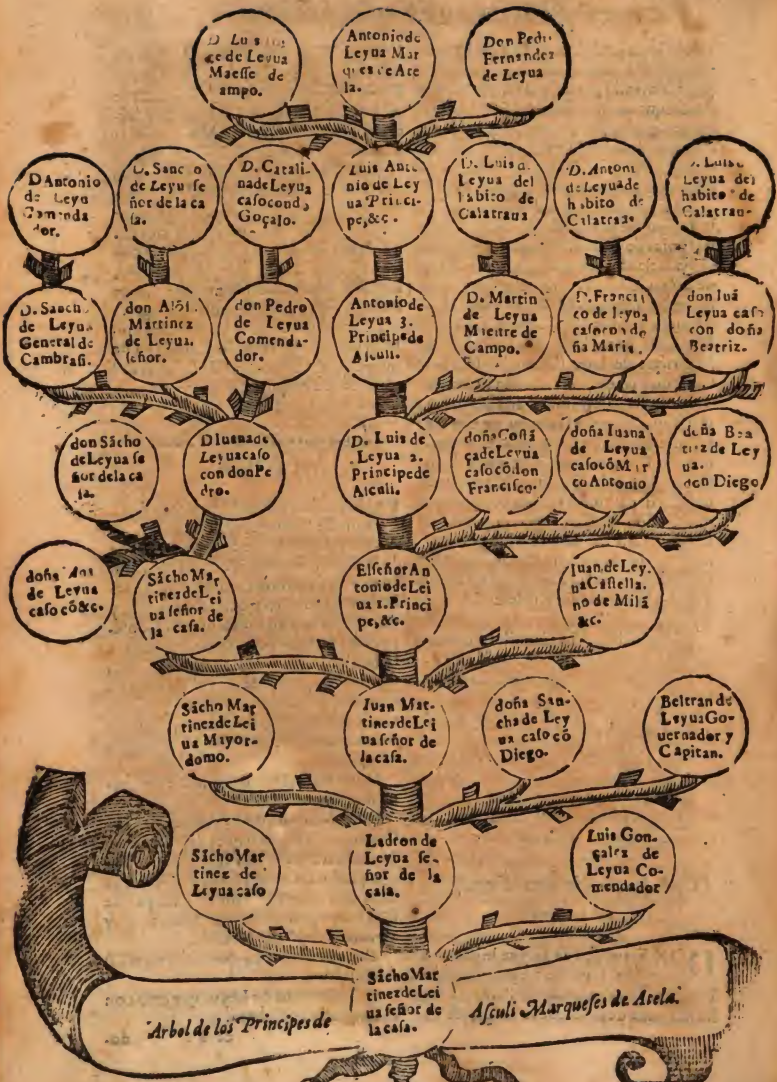 D Luis
ce de Leyua
Maesse de
ampo.
Antonio de
Leyua Mar
ques de Ate
la.
Don Pedr
Fernandez
de Leyua
D Antonio
de Leyu
Comenda
dor.
D. Sanc o
de Leyu se
ñor de la ca
sa.
D. Catali
na de Leyua
caso con d,
Gõçalo.
Luis Anto
nio de Ley
ua Princi-
pe, &c.
D. Luis d
Leyua del
habito de
Calatraua
D. Antoni
de Leyua de
habito de
Calatraua
D. Luis d
Leyua del
habito de
Calatrau-
D. Sancho
de Leyua
General de
Cambrasi.
don Alõs.
Martinez
de Leyua.
señor.
don Pedro
de Leyua
Comenda-
dor.
Antonio de
Leyua 3.
Principe de
Asculi.
D. Martin
de Leyua
Maestre de
Campo.
D. Franciſ
co de leyua
caso con do
ña Maria.
don Iuã
Leyua caso
con doña
Beatriz.
don Sãcho
de Leyua ſe
ñor de la ca
sa.
D Iuana de
Leyua caso
con don Pe
dro.
D. Luis de
Leyua 2.
Principe de
Asculi.
doña Coſtã
ça de Leyuia
caso cõ don
Francisco.
doña Iuana
de Leyua
caso cõ Mar
co Antonio
doña Bea
triz de Ley
ua.
don Diego
doña Ana
de Leyua
caso cõ &c.
Sãcho Mar
tinez de Lei
ua ſeñor de
la casa.
El ſeñor An
tonio de Lei
ua 1. Princi
pe, &c.
Iuan de Ley.
ua Castella.
no de Milã
&c.
Sãcho Mar
tinez de Lei
ua Mayor-
domo.
Iuan Mar-
tinez de Lei
ua ſeñor de
la casa.
doña San-
cha de Ley
ua caso cõ
Diego.
Beltran de
Leyua Go-
uernador y
Capitan.
Sãcho Mar
tinez de
Leyua caso
Ladron de
Leyua ſe-
ñor de la
casa.
Luis Gon-
çalez de
Leyua Co-
mendador
Sãcho Mar
tinez de Lei
ua ſeñor de
la casa.
Arbol de los Principes de Asculi Marqueses de Atela.